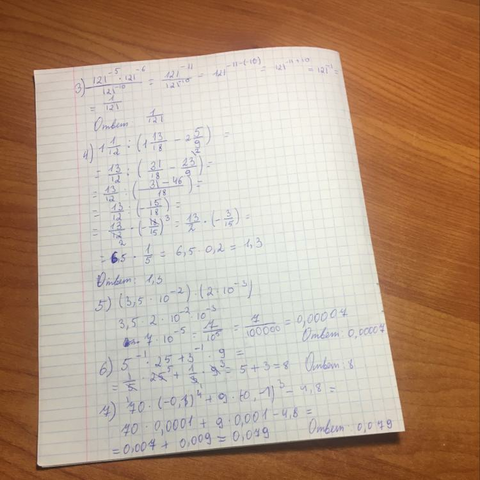 3) 121^-5 · 121^-6 / 121^-10 = 121^-11 / 121^-10 = 121^-11-(-10) = 121^-11+10 = 121^-1 =
= 1/121
Ответ 1/121
4) 1 1/12 : (1 13/18 - 2 5/9) =
= 13/12 : (31/18 - 23/9) =
= 13/12 : (31-46/18) =
= 13/12 : (-15/18) =
= 13/12 · (-18/15) = 13/2 · (-3/15) =
= 6,5 · 1/5 = 6,5 · 0,2 = 1,3
Ответ: 1,3
5) (3,5 · 10^-2) (2 · 10^-3)
3,5 · 2 · 10^-2 · 10^-3
7 · 10^-5 = 7/10^5 = 7/100000 = 0,00007
Ответ 0,00007
6) 5^-1 · 25 + 3^-1 · 9 =
= 1/5 · 25 + 1/3 · 9 = 5 + 3 = 8 Ответ: 8
7) 70 · (-0,1)^4 + 9 · (0,1)^3 - 4,8 =
70 · 0,0001 + 9 · 0,001 - 4,8 =
= 0,007 + 0,009 = 0,079 Ответ 0,079